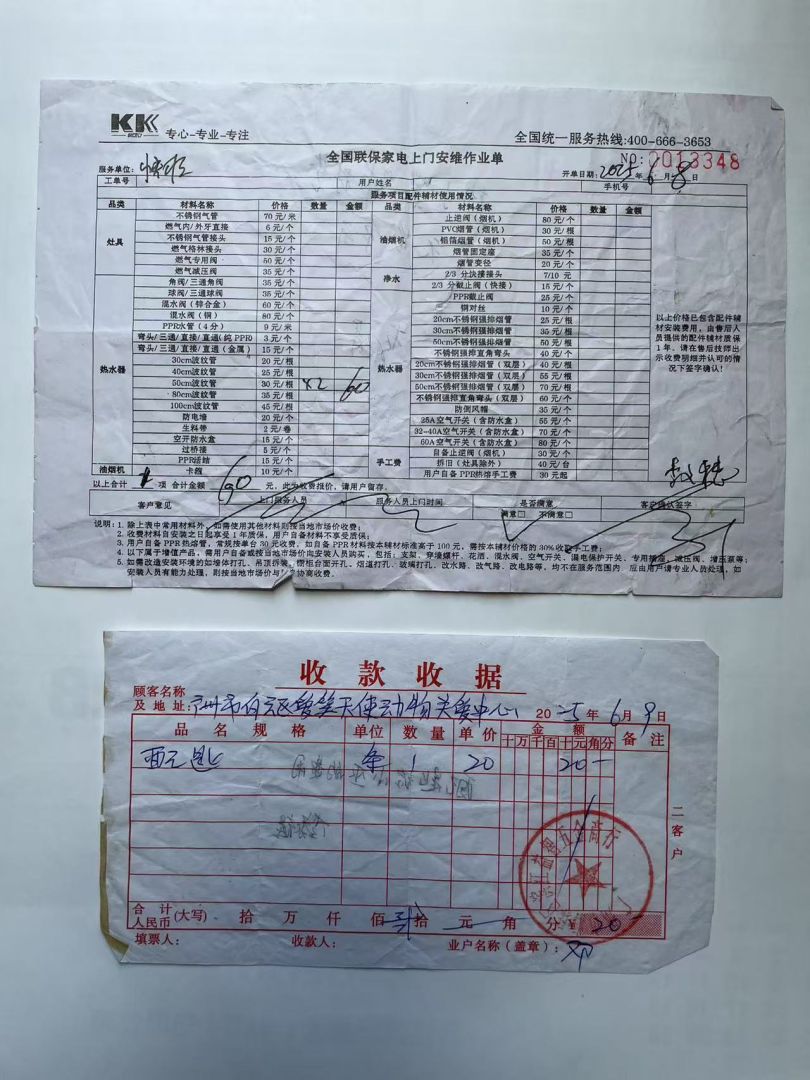 KK
专心-专业-专注
全国统一服务热线:400-666-3653
全国联保家电上门安维作业单
NO:2013348
服务单位:
开单日期:2025年6月8日
工单号 用户姓名 手机号
服务项目配件辅材使用情况
品类 材料名称 价格 数量 金额 品类 材料名称 价格 数量 金额
灶具
不锈钢气管 70元/米
燃气内/外牙直接 6元/个
不锈钢气管接头 15元/个
燃气格林接头 30元/个
燃气专用阀 50元/个
燃气减压阀 35元/个
热水器
角阀/三通角阀 35元/个
球阀/三通球阀 35元/个
混水阀(锌合金) 60元/个
混水阀(铜) 80元/个
PPR水管(4分) 9元/米
弯头/三通/直接/直通(纯PPR) 3元/个
弯头/三通/直接/直通(金属) 15元/个
30cm波纹管 20元/根
40cm波纹管 25元/根
50cm波纹管 30元/根 x2 60
80cm波纹管 35元/根
100cm波纹管 45元/根
防电墙 20元/个
生料带 2元/卷
空开防水盒 15元/个
过桥接 5元/个
PPR活结 15元/个
油烟机 卡箍 10元/个
油烟机
止逆阀(烟机) 80元/个
PVC烟管(烟机) 30元/根
铝箔烟管(烟机) 50元/根
烟管固定座 35元/个
烟管变径 20元/个
净水
2/3 分快接接头 7/10 元
2/3 分截止阀(快接) 15元/个
PPR截止阀 25元/个
铜对丝 10元/个
热水器
20cm不锈钢强排烟管 25元/根
30cm不锈钢强排烟管 35元/根
50cm不锈钢强排烟管 50元/根
不锈钢强排直角弯头 40元/个
20cm不锈钢强排烟管(双层) 40元/根
30cm不锈钢强排烟管(双层) 55元/根
50cm不锈钢强排烟管(双层) 70元/根
不锈钢强排直角弯头(双层) 60元/个
防倒风帽 35元/个
25A空气开关(含防水盒) 55元/个
32-40A空气开关(含防水盒) 70元/个
60A空气开关(含防水盒) 80元/个
手工费
自备止逆阀(烟机) 30元/个
拆旧(灶具除外) 40元/台
用户自备PPR热熔手工费 30元起
以上价格已包含配件辅
材安装费用,由售后人员
提供的配件辅材质保
1年。请在售后技师出
示收费明细并认可的情
况下签字确认!
以上合计 1 项 合计金额 60 元,此为收费报价,请用户留存。
客户意见 上门服务人员 服务人员上门时间 是否满意 客户确认签字
满意□ 不满意□
说明:1. 除上表中常用材料外,如需使用其他材料则按当地市场价收费;
2. 收费材料自安装之日起享受1年质保,用户自备材料不享受质保;
3. 用户自备PPR热熔管,常规按单台30元收费,如自备PPR材料按本辅材标准高于100元,需按本辅材价格的30%收取手工费;
4. 以下属于增值产品,需用户自备或按当地市场价向安装人员购买,包括:支架、穿墙螺杆、花洒、混水阀、空气开关、漏电保护开关、专用插座、减压阀、增压泵等;
5. 如需改造安装环境的如墙体打孔、吊顶拆装、橱柜台面开孔、烟道打孔、玻璃打孔、改水路、改气路、改电路等,均不在服务范围内,应由用户请专业人员处理,如
安装人员有能力处理,则按当地市场价与 协商收费。
收款收据
顾客名称
及地址:广州市白云区 天使动物关爱中心 2025年6月9日
品名规格 单位 数量 单价 金额 备注
十万千百十元角分
配元匙 条 1 20 20-
二客户
合计
人民币(大写) 拾 万 仟 佰 贰拾 元 角 分 ¥ 20-
填票人: 收款人: 业户名称(盖章): 邓